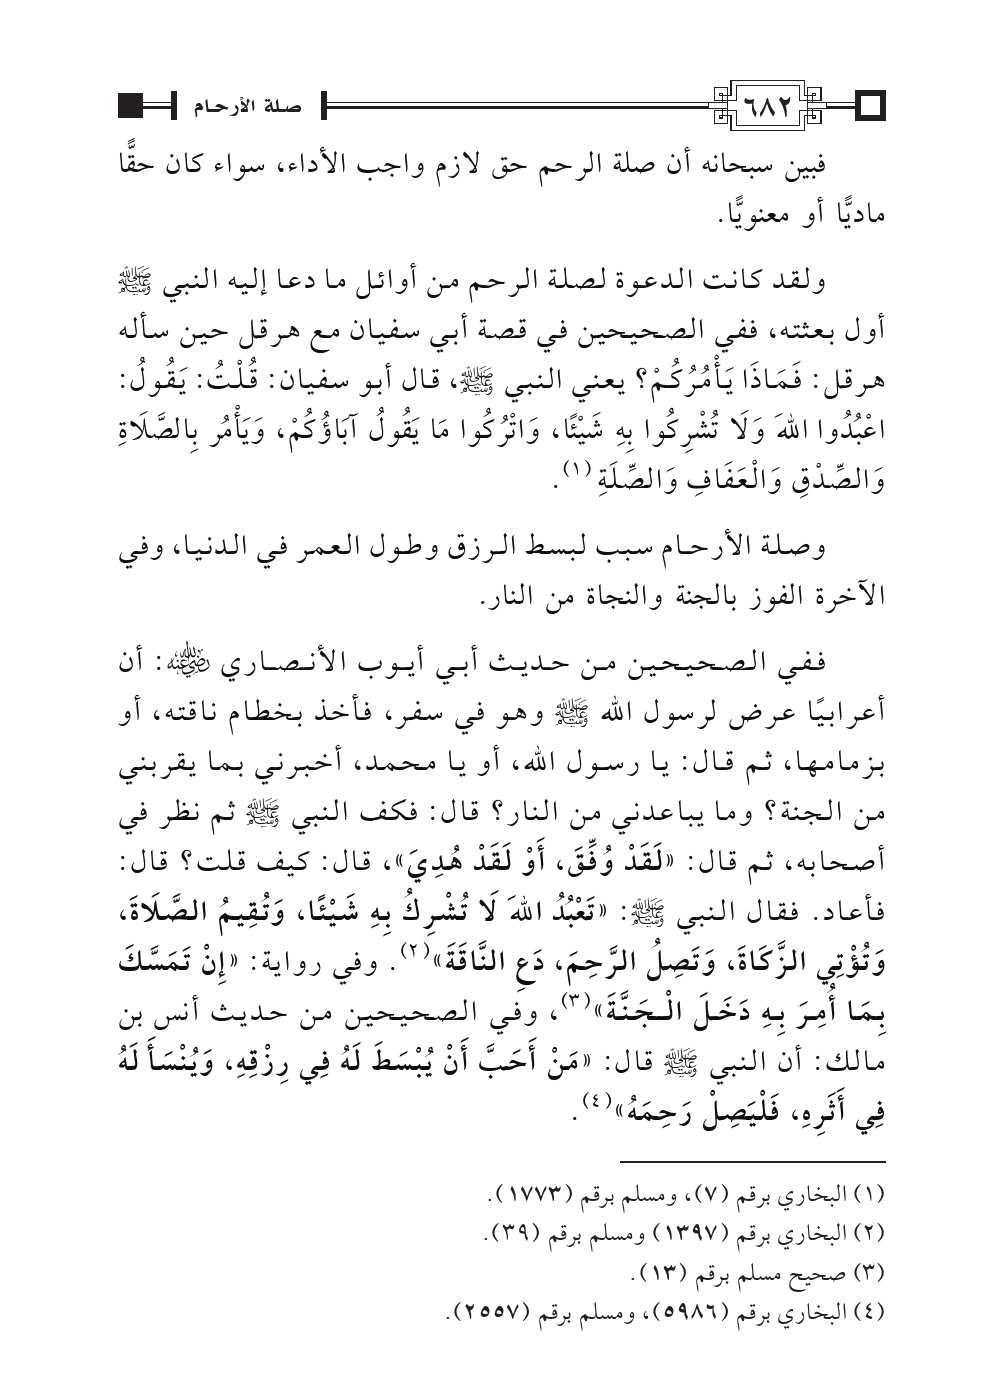 ٦٨٢
صلة الأرحام
فبين سبحانه أن صلة الرحم حق لازم واجب الأداء، سواء كان حقًّا
ماديًّا أو معنويًّا.
ولقد كانت الدعوة لصلة الرحم من أوائل ما دعا إليه النبي ﷺ
أول بعثته، ففي الصحيحين في قصة أبي سفيان مع هرقل حين سأله
هرقل: فَمَاذَا يَأْمُرُكُمْ؟ يعني النبي ﷺ، قال أبو سفيان: قُلْتُ: يَقُولُ:
اعْبُدُوا اللهَ وَلَا تُشْرِكُوا بِهِ شَيْئًا، وَاتْرُكُوا مَا يَقُولُ آبَاؤُكُمْ، وَيَأْمُر بِالصَّلَاةِ
وَالصِّدْقِ وَالْعَفَافِ وَالصِّلَةِ(١).
وصلة الأرحام سبب لبسط الرزق وطول العمر في الدنيا، وفي
الآخرة الفوز بالجنة والنجاة من النار.
ففي الصحيحين من حديث أبي أيوب الأنصاري رضي الله عنه: أن
أعرابيًا عرض لرسول الله ﷺ وهو في سفر، فأخذ بخطام ناقته، أو
بزمامها، ثم قال: يا رسول الله، أو يا محمد، أخبرني بما يقربني
من الجنة؟ وما يباعدني من النار؟ قال: فكف النبي ﷺ ثم نظر في
أصحابه، ثم قال: «لَقَدْ وُفِّقَ، أَوْ لَقَدْ هُدِيَ»، قال: كيف قلت؟ قال:
فأعاد. فقال النبي ﷺ: «تَعْبُدُ اللهَ لَا تُشْرِكُ بِهِ شَيْئًا، وَتُقِيمُ الصَّلَاةَ،
وَتُؤْتِي الزَّكَاةَ، وَتَصِلُ الرَّحِمَ، دَعِ النَّاقَةَ»(٢). وفي رواية: «إِنْ تَمَسَّكَ
بِمَا أُمِرَ بِهِ دَخَلَ الْجَنَّةَ»(٣)، وفي الصحيحين من حديث أنس بن
مالك: أن النبي ﷺ قال: «مَنْ أَحَبَّ أَنْ يُبْسَطَ لَهُ فِي رِزْقِهِ، وَيُنْسَأَ لَهُ
فِي أَثَرِهِ، فَلْيَصِلْ رَحِمَهُ»(٤).
(١) البخاري برقم (٧)، ومسلم برقم (١٧٧٣).
(٢) البخاري برقم (١٣٩٧) ومسلم برقم (٣٩).
(٣) صحيح مسلم برقم (١٣).
(٤) البخاري برقم (٥٩٨٦)، ومسلم برقم (٢٥٥٧).